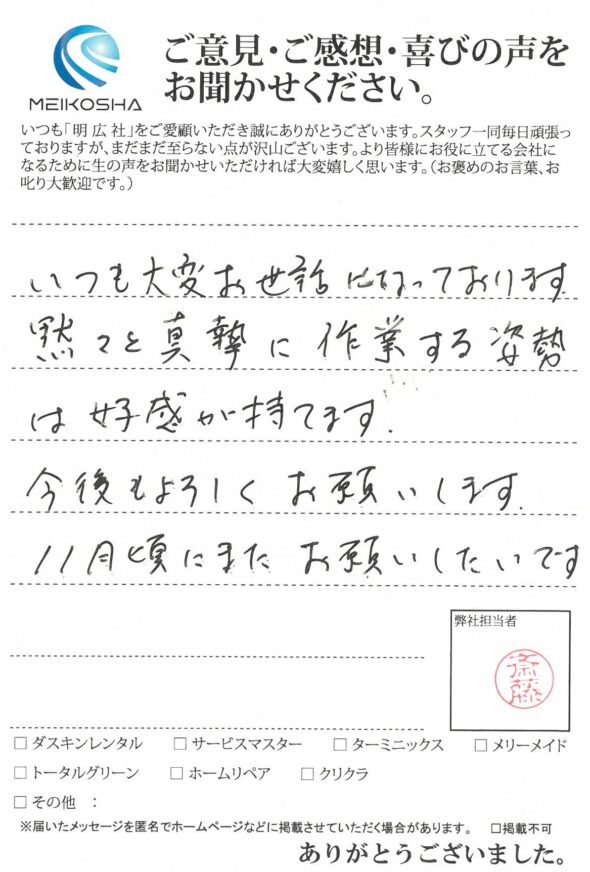 MEIKOSHA
ご意見・ご感想・喜びの声を
お聞かせください。
いつも「明広社」をご愛顧いただき誠にありがとうございます。スタッフ一同毎日頑張っ
ておりますが、まだまだ至らない点が沢山ございます。より皆様にお役に立てる会社に
なるために生の声をお聞かせいただければ大変嬉しく思います。（お褒めのお言葉、お
叱り大歓迎です。）
いつも大変お世話になっております。
黙々と真摯に作業する姿勢
は好感が持てます。
今後もよろしくお願いします。
11月頃にまたお願いしたいです
弊社担当者
斎藤
□ ダスキンレンタル □ サービスマスター □ ターミニックス □ メリーメイド
□ トータルグリーン □ ホームリペア □ クリクラ
□ その他 ：
※届いたメッセージを匿名でホームページなどに掲載させていただく場合があります。 □掲載不可
ありがとうございました。